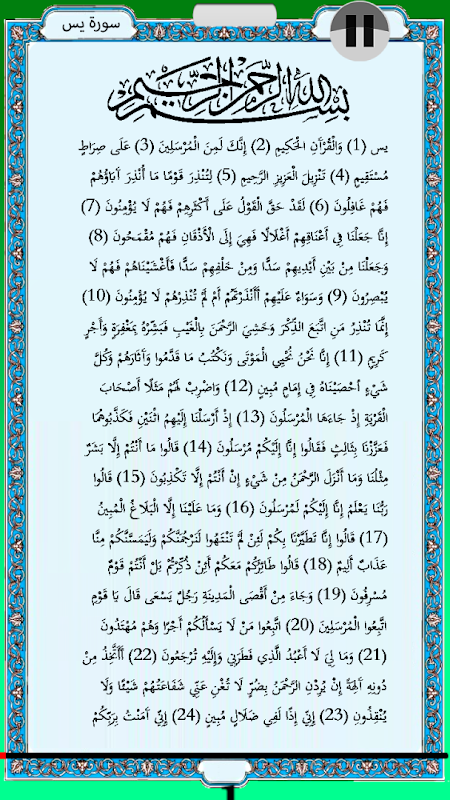 سورة يس
بسم الله الرحمن الرحيم
يس (1) وَالْقُرْآنِ الْحَكِيمِ (2) إِنَّكَ لَمِنَ الْمُرْسَلِينَ (3) عَلَى صِرَاطٍ
مُسْتَقِيمٍ (4) تَنْزِيلَ الْعَزِيزِ الرَّحِيمِ (5) لِتُنْذِرَ قَوْمًا مَا أُنْذِرَ آبَاؤُهُمْ
فَهُمْ غَافِلُونَ (6) لَقَدْ حَقَّ الْقَوْلُ عَلَى أَكْثَرِهِمْ فَهُمْ لَا يُؤْمِنُونَ (7)
إِنَّا جَعَلْنَا فِي أَعْنَاقِهِمْ أَغْلَالًا فَهِيَ إِلَى الْأَذْقَانِ فَهُمْ مُقْمَحُونَ (8)
وَجَعَلْنَا مِنْ بَيْنِ أَيْدِيهِمْ سَدًّا وَمِنْ خَلْفِهِمْ سَدًّا فَأَغْشَيْنَاهُمْ فَهُمْ لَا
يُبْصِرُونَ (9) وَسَوَاءٌ عَلَيْهِمْ أَأَنْذَرْتَهُمْ أَمْ لَمْ تُنْذِرْهُمْ لَا يُؤْمِنُونَ (10)
إِنَّمَا تُنْذِرُ مَنِ اتَّبَعَ الذِّكْرَ وَخَشِيَ الرَّحْمَنَ بِالْغَيْبِ فَبَشِّرْهُ بِمَغْفِرَةٍ وَأَجْرٍ
كَرِيمٍ (11) إِنَّا نَحْنُ نُحْيِي الْمَوْتَى وَنَكْتُبُ مَا قَدَّمُوا وَآثَارَهُمْ وَكُلَّ
شَيْءٍ أحْصَيْنَاهُ فِي إِمَامٍ مُبِينٍ (12) وَاضْرِبْ لَهُمْ مَثَلًا أَصْحَابَ
الْقَرْيَةِ إِذْ جَاءَهَا الْمُرْسَلُونَ (13) إِذْ أَرْسَلْنَا إِلَيْهِمُ اثْنَيْنِ فَكَذَّبُوهُمَا
فَعَزَّزْنَا بِثَالِثٍ فَقَالُوا إِنَّا إِلَيْكُمْ مُرْسَلُونَ (14) قَالُوا مَا أَنْتُمْ إِلَّا بَشَرٌ
مِثْلُنَا وَمَا أَنْزَلَ الرَّحْمَنُ مِنْ شَيْءٍ إِنْ أَنْتُمْ إِلَّا تَكْذِبُونَ (15) قَالُوا
رَبُّنَا يَعْلَمُ إِنَّا إِلَيْكُمْ لَمُرْسَلُونَ (16) وَمَا عَلَيْنَا إِلَّا الْبَلَاغُ الْمُبِينُ
(17) قَالُوا إِنَّا تَطَيَّرْنَا بِكُمْ لَئِنْ لَمْ تَنْتَهُوا لَنَرْجُمَنَّكُمْ وَلَيَمَسَّنَّكُمْ مِنَّا
عَذَابٌ أَلِيمٌ (18) قَالُوا طَائِرُكُمْ مَعَكُمْ أَئِنْ ذُكِّرْتُمْ بَلْ أَنْتُمْ قَوْمٌ
مُسْرِفُونَ (19) وَجَاءَ مِنْ أَقْصَى الْمَدِينَةِ رَجُلٌ يَسْعَى قَالَ يَا قَوْمِ
اتَّبِعُوا الْمُرْسَلِينَ (20) اتَّبِعُوا مَنْ لَا يَسْأَلُكُمْ أَجْرًا وَهُمْ مُهْتَدُونَ
(21) وَمَا لِيَ لَا أَعْبُدُ الَّذِي فَطَرَنِي وَإِلَيْهِ تُرْجَعُونَ (22) أَأَتَّخِذُ مِنْ
دُونِهِ آلِهَةً إِنْ يُرِدْنِ الرَّحْمَنُ بِضُرٍّ لَا تُغْنِ عَنِّي شَفَاعَتُهُمْ شَيْئًا وَلَا
يُنْقِذُونِ (23) إِنِّي إِذًا لَفِي ضَلَالٍ مُبِينٍ (24) إِنِّي آمَنْتُ بِرَبِّكُمْ